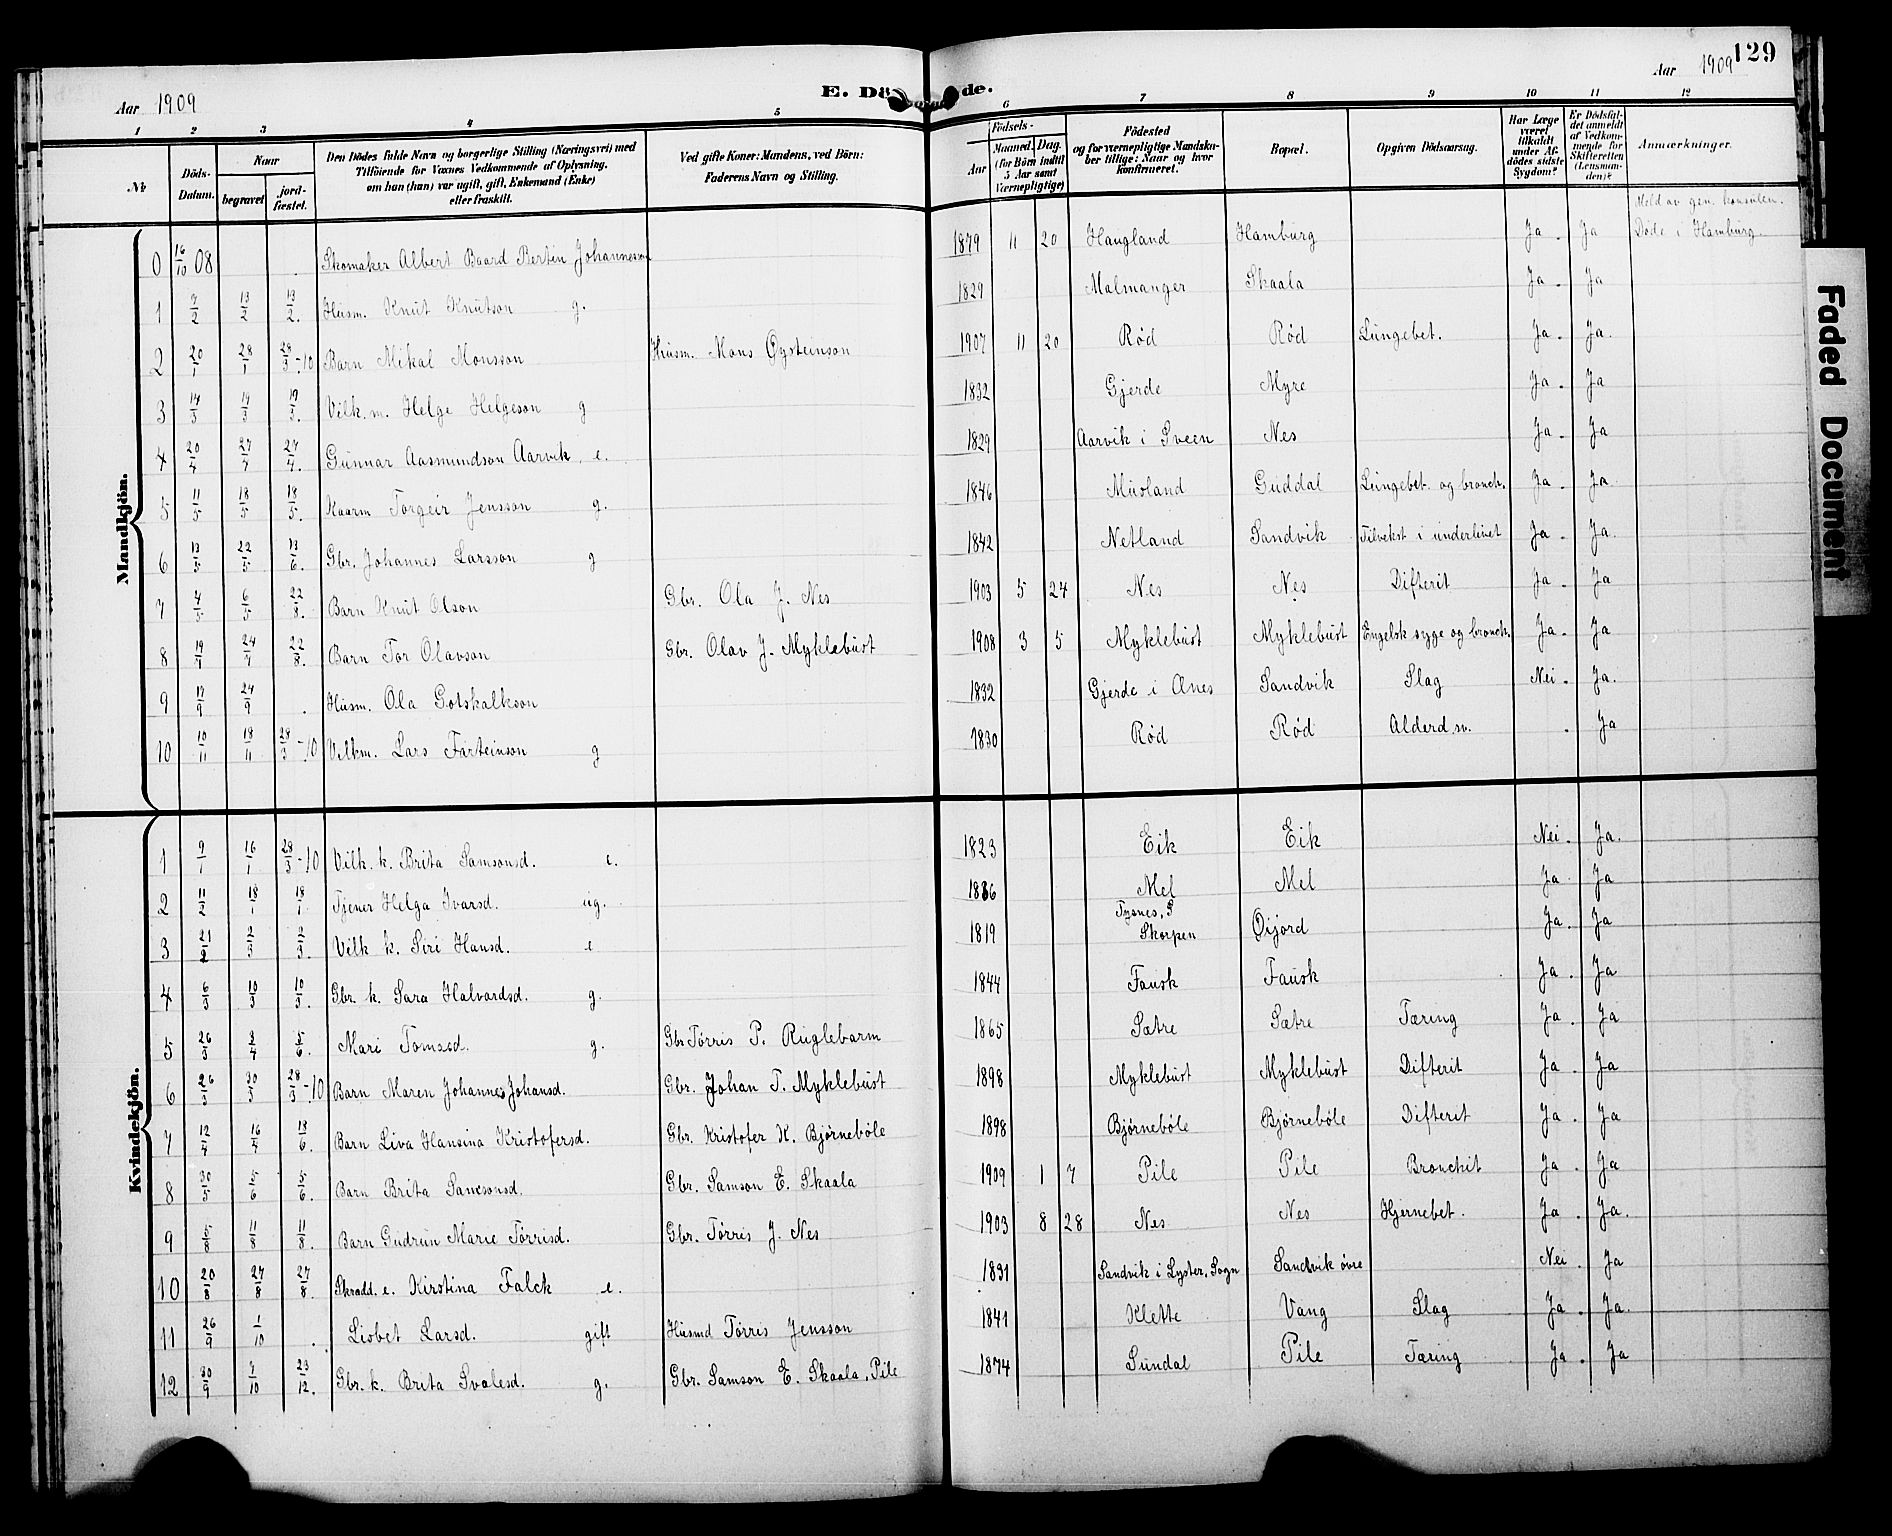 129
Aar 1909
E. Dö de.
Aar 1909
1 2 3 4 5 6 7 8 9 10 11 12
No
Döds-Datum.
Naar
begravet
jord-fæstet.
Den Dödes fulde Navn og borgerlige Stilling (Næringsvei) med
Tilföiende for Voxnes Vedkommende af Oplysning,
om han (hun) var ugift, gift, Enkemand (Enke)
eller fraskilt.
Ved gifte Koner: Mandens, ved Börn:
Faderens Navn og Stilling.
Födsels-
Aar
Maaned. Dag.
(for Börn indtil
5 Aar samt
Værnepligtige)
Födested
og for værnepligtige Mandskaber tillige: Naar og hvor
konfirmeret.
Bopæl.
Opgiven Dödsaarsag.
Har Læge
været
tilkaldt
under Afdödes sidste
Sygdom?
Er Dödsfaldet anmeldt
af Vedkommende for
Skifteretten
(Lensmanden)?
Anmærkninger.
Mandkjön.
0 16/10 08 Skomaker Albert Baard Bertin Johannesson 1879 11 20 Haugland Hamburg Ja. Ja Meld av gen. konsulen. Døde i Hamburg.
1 9/2 13/2 13/2. Husm. Knut Knutson g. 1829 Malmanger Skaala Ja. Ja
2 20/1 28/1 28/3-10 Barn Mikal Monsson Husm. Mons Øysteinson 1907 11 20 Rød Rød Lungebet. Ja. Ja.
3 14/3 19/3 19/3. Vilk.m. Helge Helgeson g 1832 Gjerde Myre Ja. Ja
4 20/4 27/4 27/4. Gunnar Aasmundson Aarvik, e. 1829 Aarvik i Sveen Nes Ja. Ja
5 11/5 18/5 18/5. Kaarm Torgeir Jensson g. 1846 Musland Guddal Lungebet. og bronch. Ja. Ja
6 13/5 22/5 13/6. Gbr. Johannes Larsson g 1842 Netland Sandvik Tilvekst i underlivet Ja. Ja.
7 4/5 6/5 22/8. Barn Knut Olson Gbr. Ola J. Nes 1903 5 24 Nes Nes Difterit Ja. Ja
8 19/7 24/7 22/8. Barn Tor Olavson Gbr. Olav J. Myklebust 1908 3 5 Myklebust Myklebust Engelsk syge og bronch. Ja. Ja
9 17/9 24/9 . Husm. Ola Gotskalkson 1832 Gjerde i Ænes Sandvik Slag Nei. Ja.
10 10/11 18/11 28/3-10 Vilkm. Lars Farteinson g 1830 Rød Rød Alderd.sv. . Ja
Kvindekjön.
1 9/1 16/1 28/3-10 Vilk. k. Brita Samsonsd. e. 1823 Eik Eik Nei. Ja.
2 11/2 18/1 18/1. Tjener Helga Ivarsd. ug. Mel Mel Ja. Ja
3 21/2 2/3 2/3. Vilk k. Siri Hansd. e 1819 Tysnes, Skorpen Øijord Ja. Ja
4 6/3 10/3 10/3. Gbr. k. Sara Halvardsd. g. 1844 Fausk Fausk Ja. Ja
5 26/3 2/4 5/6. Mari Tomasd. g. Gbr Tørris P. Ruglebarm 1865 Sætre Sætre Tæring Ja. Ja
6 26/3 30/3 28/3-10 Barn Maren Johannes Johansd. Gbr. Johan T. Myklebust 1898 Myklebust Myklebust Difterit Ja. Ja
7 12/4 16/4 13/6. Barn Liva Hansina Kristofersd. Gbr. Kristofer K. Bjørnebøle 1898 Bjørnebøle Bjørnebøle Difterit Ja. Ja
8 30/5 5/6 5/6. Barn Brita Samsonsd. Gbr. Samson E. Skaala 1909 1 7 Pile Pile Bronchit Ja. Ja
9 5/8 11/8 11/8. Barn Gudrun Marie Tørrisd. Gbr. Tørris J. Nes 1903 8 28 Nes Nes Hjernebet. Ja. Ja.
10 20/8 27/8 27/8. Skradd. e. Kirstina Falck e. 1831 Sandvik i Lyster, Sogn Sandvik øvre Nei. Ja
11 26/9 1/10 . Lisbet Larsd. gift Husmd Tørris Jensson 1841 Klette Vang Slag Ja. Ja.
12 30/9 7/10 23/12. Gbr. k. Brita Svalesd. g. Gbr. Samson E. Skaala, Pile 1874 Sundal Pile Tæring Ja. Ja
Faded Document